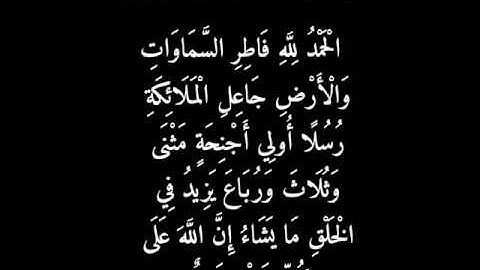 الْحَمْدُ لِلَّهِ فَاطِرِ السَّمَاوَاتِ
وَالْأَرْضِ جَاعِلِ الْمَلَائِكَةِ
رُسُلًا أُولِي أَجْنِحَةٍ مَثْنَى
وَثُلَاثَ وَرُبَاعَ يَزِيدُ فِي
الْخَلْقِ مَا يَشَاءُ إِنَّ اللَّهَ عَلَى